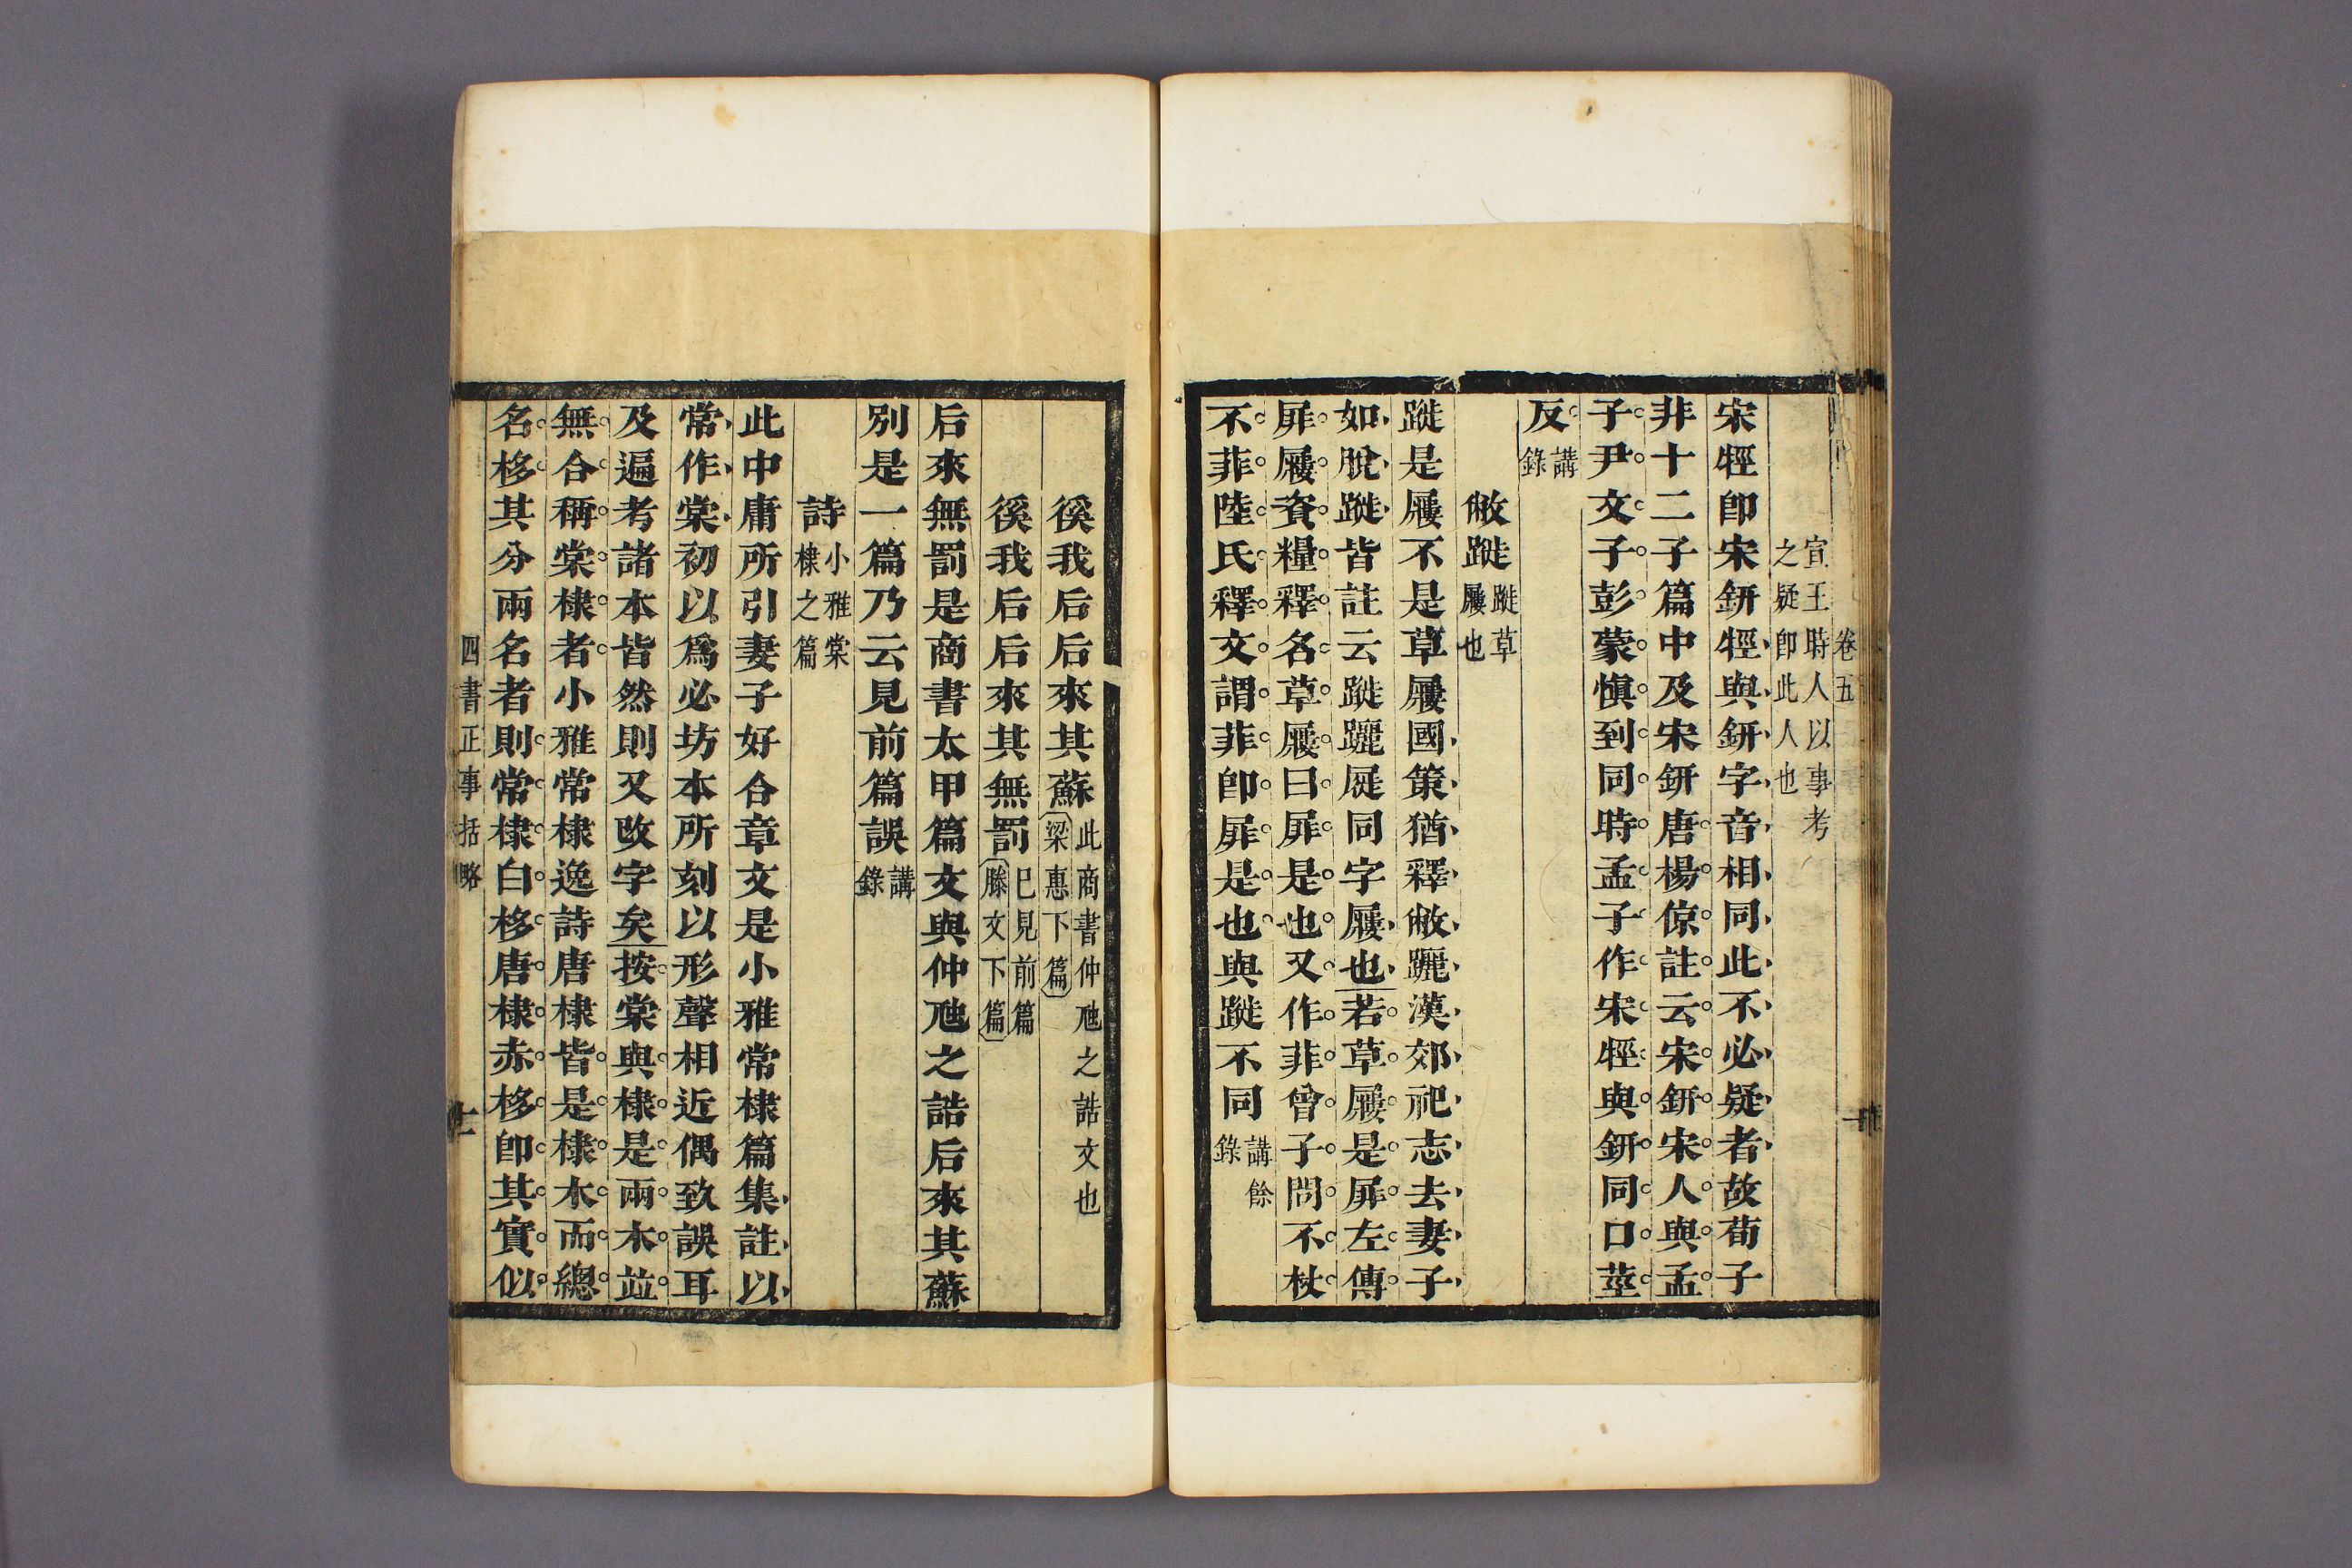 卷五
宣王時人以事考
之疑卽此人也
宋牼卽宋鈃牼與鈃字音相同此不必疑者故荀子
非十二子篇中及宋鈃唐楊倞註云宋鈃宋人與孟
子尹文子彭蒙愼到同時孟子作宋牼與鈃同口莖
反講錄
敝蹝蹝草屨也
蹝是屨不是草屨國策猶釋敝躧漢郊祀志去妻子
如脫蹝皆註云蹝躧屣同字屨也若草屨是屝左傳
屝屨資糧釋名草屨曰屝是也又作菲曾子問不杖
不菲陸氏釋文謂菲卽屝是也與蹝不同講餘錄
徯我后后來其蘇此商書仲虺之誥文也梁惠下篇
徯我后后來其無罰已見前篇滕文下篇
后來無罰是商書太甲篇文與仲虺之誥后來其蘇
別是一篇乃云見前篇誤講錄
詩小雅棠棣之篇
此中庸所引妻子好合章文是小雅常棣篇集註以
常作棠初以爲必坊本所刻以形聲相近偶致誤耳
及遍考諸本皆然則又改字矣按棠與棣是兩木並
無合稱棠棣者小雅常棣逸詩唐棣皆是棣木而總
名栘其分兩名者則常棣白栘唐棣赤栘卽其實似
四書正事括略